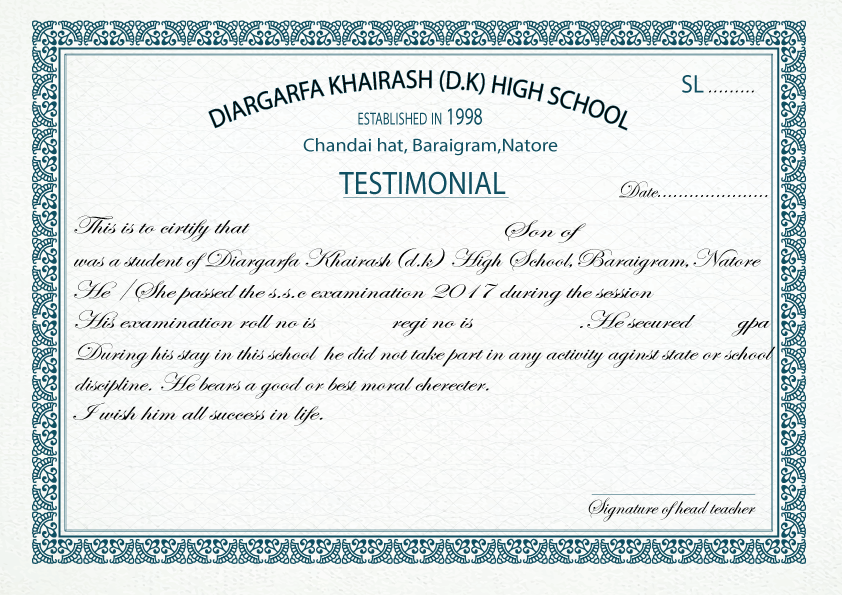 DIARGARFA KHAIRASH (D.K) HIGH SCHOOL
SL .........
ESTABLISHED IN 1998
Chandai hat, Baraigram,Natore
TESTIMONIAL
Date.....................
This is to cirtify that Son of
was a student of Diargarfa Khairash (d.k) High School, Baraigram, Natore
He /She passed the s.s.c examination 2017 during the session
His examination roll no is regi no is .He secured gpa
During his stay in this school he did not take part in any activity aginst state or school
discipline. He bears a good or best moral cherecter.
I wish him all success in life.
Signature of head teacher